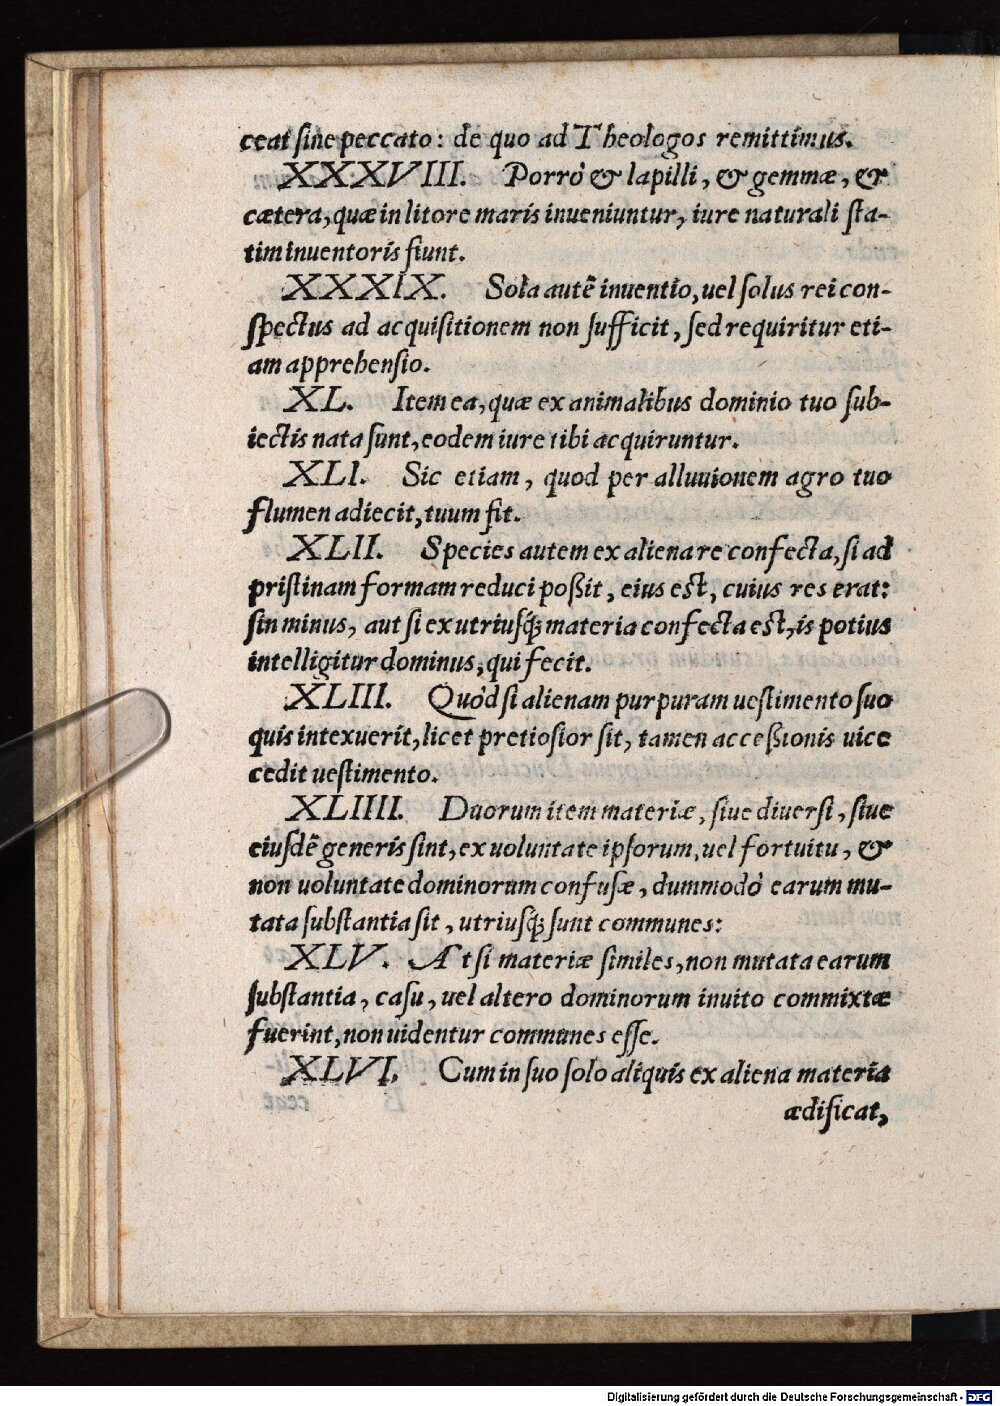 ceat sine peccato: de quo ad Theologos remittimus.
XXXVIII. Porrò & lapilli, & gemmæ, &
cætera, quæ in litore maris inueniuntur, iure naturali sta-
tim inuentoris fiunt.
XXXIX. Sola autẽ inuentio, uel solus rei con-
spectus ad acquisitionem non sufficit, sed requiritur eti-
am apprehensio.
XL. Item ea, quæ ex animalibus dominio tuo sub-
iectis nata sunt, eodem iure tibi acquiruntur.
XLI. Sic etiam, quod per alluuionem agro tuo
flumen adiecit, tuum fit.
XLII. Species autem ex aliena re confecta, si ad
pristinam formam reduci poßit, eius est, cuius res erat:
sin minus, aut si ex utriusq́; materia confecta est, is potius
intelligitur dominus, qui fecit.
XLIII. Quòd si alienam purpuram uestimento suo
quis intexuerit, licet pretiosior sit, tamen acceßionis uice
cedit uestimento.
XLIIII. Duorum item materiæ, siue diuersi, siue
eiusdẽ generis sint, ex uoluntate ipsorum, uel fortuitu, &
non uoluntate dominorum confusæ, dummodò earum mu-
tata substantia sit, utriusq́; sunt communes:
XLV. At si materiæ similes, non mutata earum
substantia, casu, uel altero dominorum inuito commixtæ
fuerint, non uidentur communes esse.
XLVI. Cum in suo solo aliquis ex aliena materia
ædificat,
Digitalisierung gefördert durch die Deutsche Forschungsgemeinschaft - DFG